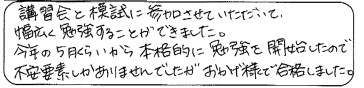 講習会と模試に参加させていただいて、
幅広く勉強することができました。
今年の5月くらいから本格的に勉強を開始したので
不安要素しかありませんでしたがおかげ様で合格しました。